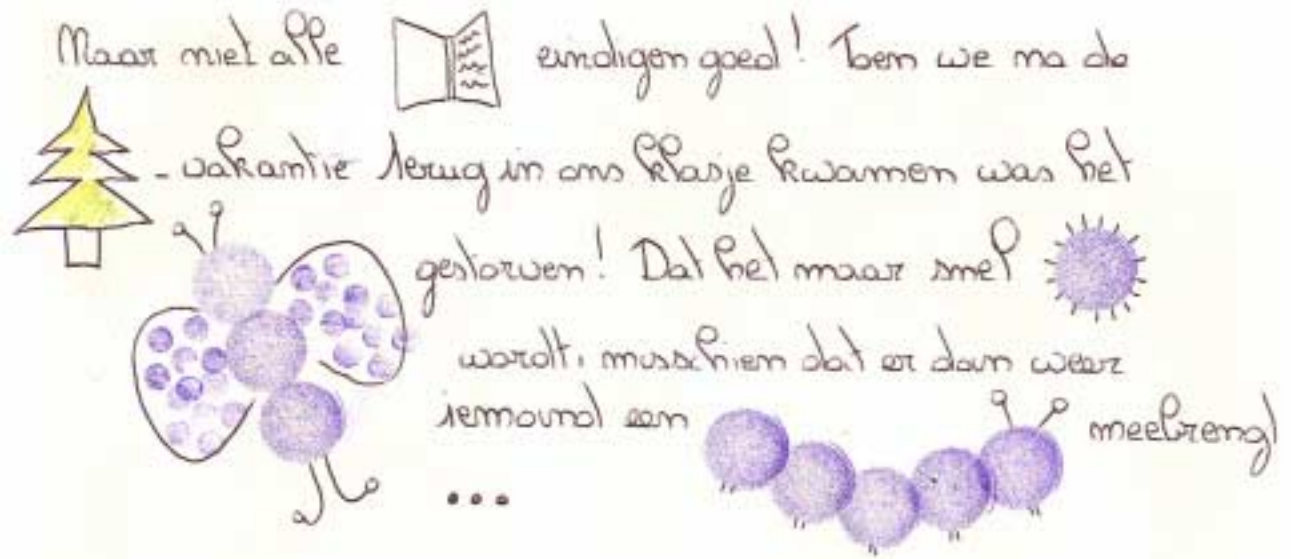 Maar niet alle eindigen goed! Toen we na de
-vakantie terug in ons klasje kwamen was het
gestorven! Dat het maar snel
wordt, misschien dat er dan weer
iemand een meebrengt
...